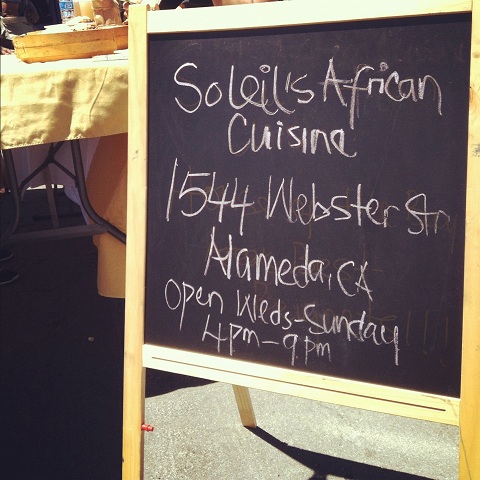 Soleil's African
Cuisine
1544 Webster Str
Alameda, CA
Open Weds-Sunday
4pm-9pm